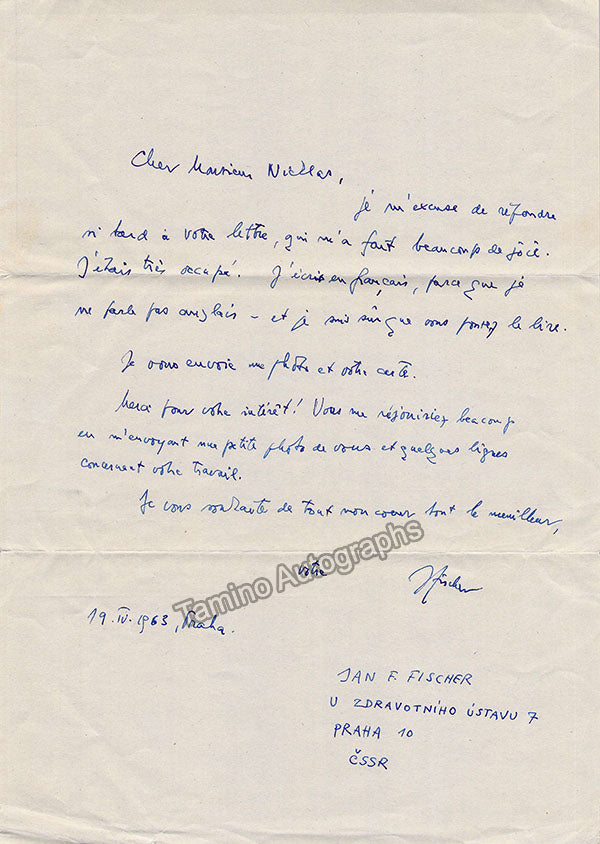 Cher Monsieur Nicklas,
je m'excuse de répondre
si tard à votre lettre, qui m'a fait beaucoup de joie.
J'étais très occupé. J'écris en français, parce que je
ne parle pas anglais – et je suis sûr que vous pouvez le lire.
Je vous envoie une photo et votre carte.
Merci pour votre intérêt! Vous me réjouiriez beaucoup
en m'envoyant une petite photo de vous et quelques lignes
concernant votre travail.
Je vous souhaite de tout mon coeur tout le meuilleur,
votre JFischer
Tamino Autographs
19. IV. 1963, Praha.
JAN F. FISCHER
U ZDRAVOTNÍHO ÚSTAVU 7
PRAHA 10
ČSSR